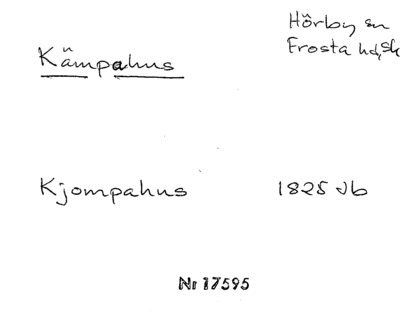 Kämpahus
Hörby sn
Frosta hd, Sk
Kjompahus 1825 Jb
Nr 17595